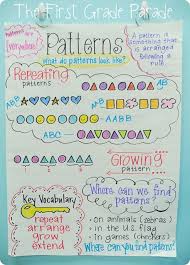 The First Grade Parade
Patterns are everywhere!
Patterns
What do patterns look like?
A pattern is
something that
is arranged
following a
rule.
Repeating
pattern
AB
ABC
AABB
ABC
Growing
pattern
Key Vocabulary
repeat
arrange
grow
extend
Where can we find
patterns?
- on animals (zebras)
- in the U.S. flag
- in games (checkers)
Where can you find patterns?